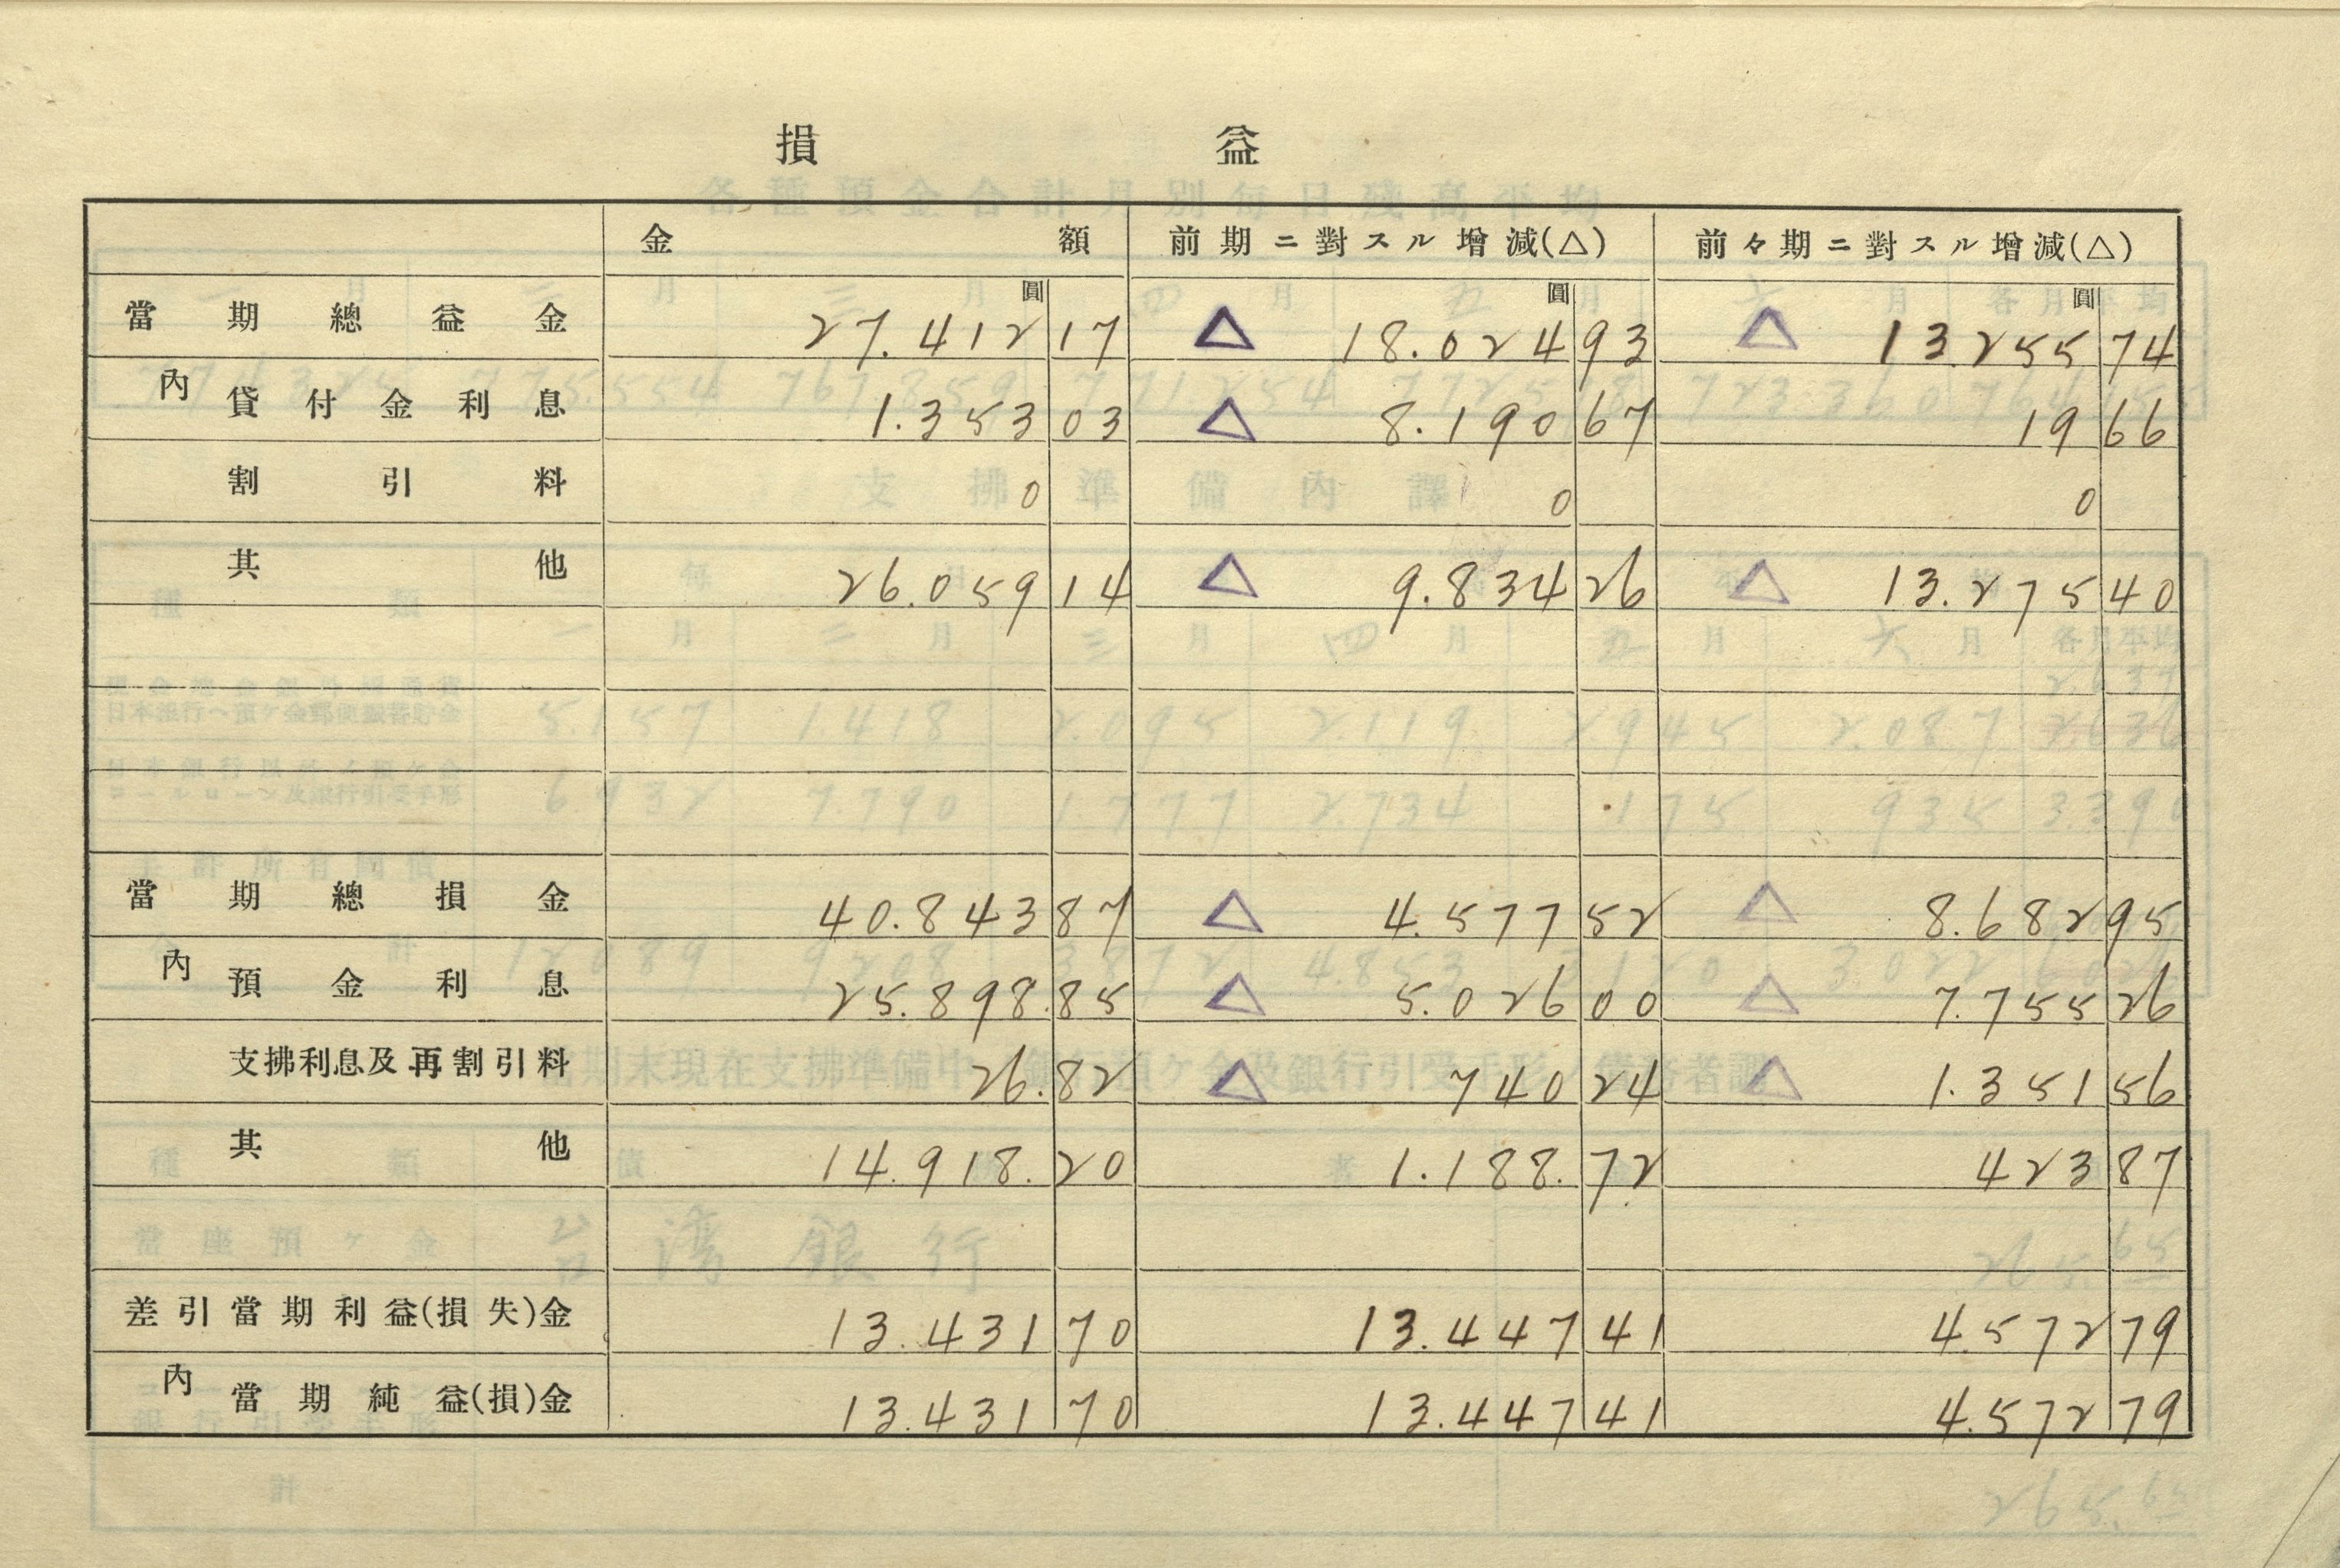 損益
金額 前期ニ對スル增減(△) 前々期ニ對スル增減(△)
圓 圓 圓
當期總益金 27.412 17 △ 18.024 93 △ 13.255 74
內 貸付金利息 1.353 03 △ 8.190 67 19 66
割引料 0 0 0
其他 26.059 14 △ 9.834 26 △ 13.275 40
當期總損金 40.843 87 △ 4.577 52 △ 8.682 95
內 預金利息 25.898.85 △ 5.026 00 △ 7.755 26
支拂利息及再割引料 26.82 △ 740 24 △ 1.351 56
其他 14.918.20 1.188.72 423 87
差引當期利益(損失)金 13.431 70 13.447 41 4.572 79
內 當期純益(損)金 13.431 70 13.447 41 4.572 79